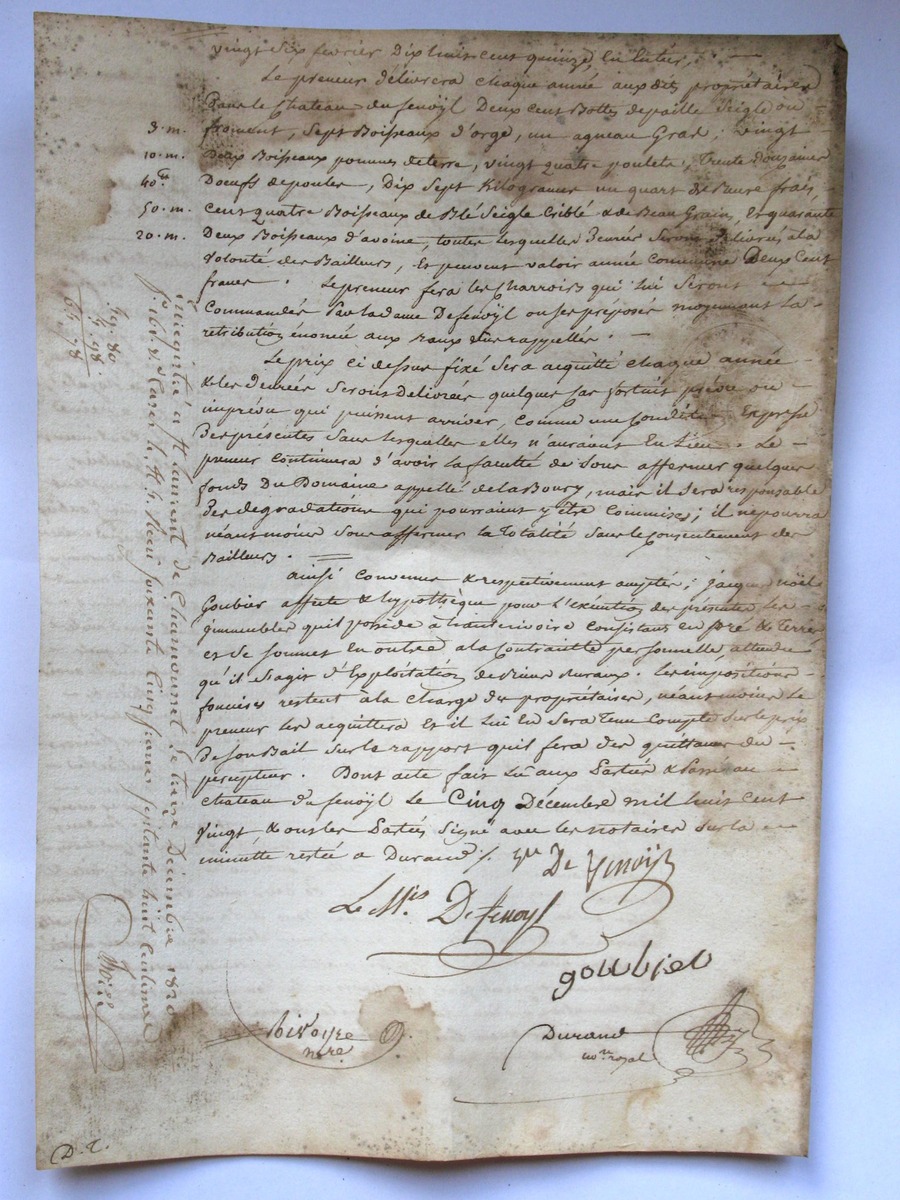 vingt six fevrier Dix huit cent quinze,
Le preneur délivrera chaque année aux dits propriétaires
Dans le Chateau du fenoÿl Deux Cent Bottes de paille Seigle ou
3. m. froment, Sept Boisseaux d'orge, un agneau Gras, vingt
10. m. Deux Boisseaux pommes de terre, vingt quatre poulets, Trente Douzaines
40 Doeufs de poules, Dix Sept Kilogrames un quart de Baure frais,
50. m. Cent quatre Boisseaux de Blé Seigle Criblé & de Beau Grain, Et quarante
20. m. Deux Boisseaux d'avoine, toutes lesquelles Denrées Seront Delivrées a la
Volonté des Bailleurs, Et peuvent valoir année Commune Deux Cent
francs. Le preneur fera les Charrois qui lui Seront
Commandés par la dame De fenoÿl ou ses préposés moyennant la
retribution énoncée aux Baux Sus rappellés.
Le prix ci dessus fixé Sera acquitté chaque année
& les denrées Seront Delivrées quelques Cas fortuits prévu ou
imprévu qui puissent arriver, Comme une Condition Expresse
Des présentes Sans lesquelles elles n'auraient Eu Lieu. Le
preneur Continuera d'avoir la faculté de Sous affermer quelques
fonds Du Domaine appellé de la Boury, mais il Sera responsable
des degradations qui pourraient y être Commises; il ne pourra
néant moins Sous affermer la Totalité Sans le Consentement des
Bailleurs.
ainsi Convenu & respectivement accepté; jacques noël
Goubier affecte & hypothèque pour l'exécution des présentes Les
jmmeubles quil possède à Consistans en pré & Terres
et Se Soumet En outre a la Contrainte personnelle, attendu
qu'il S'agit d'Exploitation de Biens Ruraux. Les impositions
foncières restent à la charge des propriétaires, néant moins Le
preneur les acquittera Et il lui En Sera Tenu Compte Sur le prix
De Son Bail Sur le rapport quil fera des quittances du
percepteur. Dont acte fait Lu aux Parties & Passé au
chateau du fenoÿl Le Cinq Décembre mil huit cent
Vingt & ont les Parties Signé avec les notaires Sur la
minutte restée a Durand
De fenoÿl
Le Mis De fenoyl
goubier
Durand
no.re royal
n.re
Enregistré à St Laurent de Chamousset le treize Décembre 1820
soixante cinq francs soixante huit centimes
D. R.